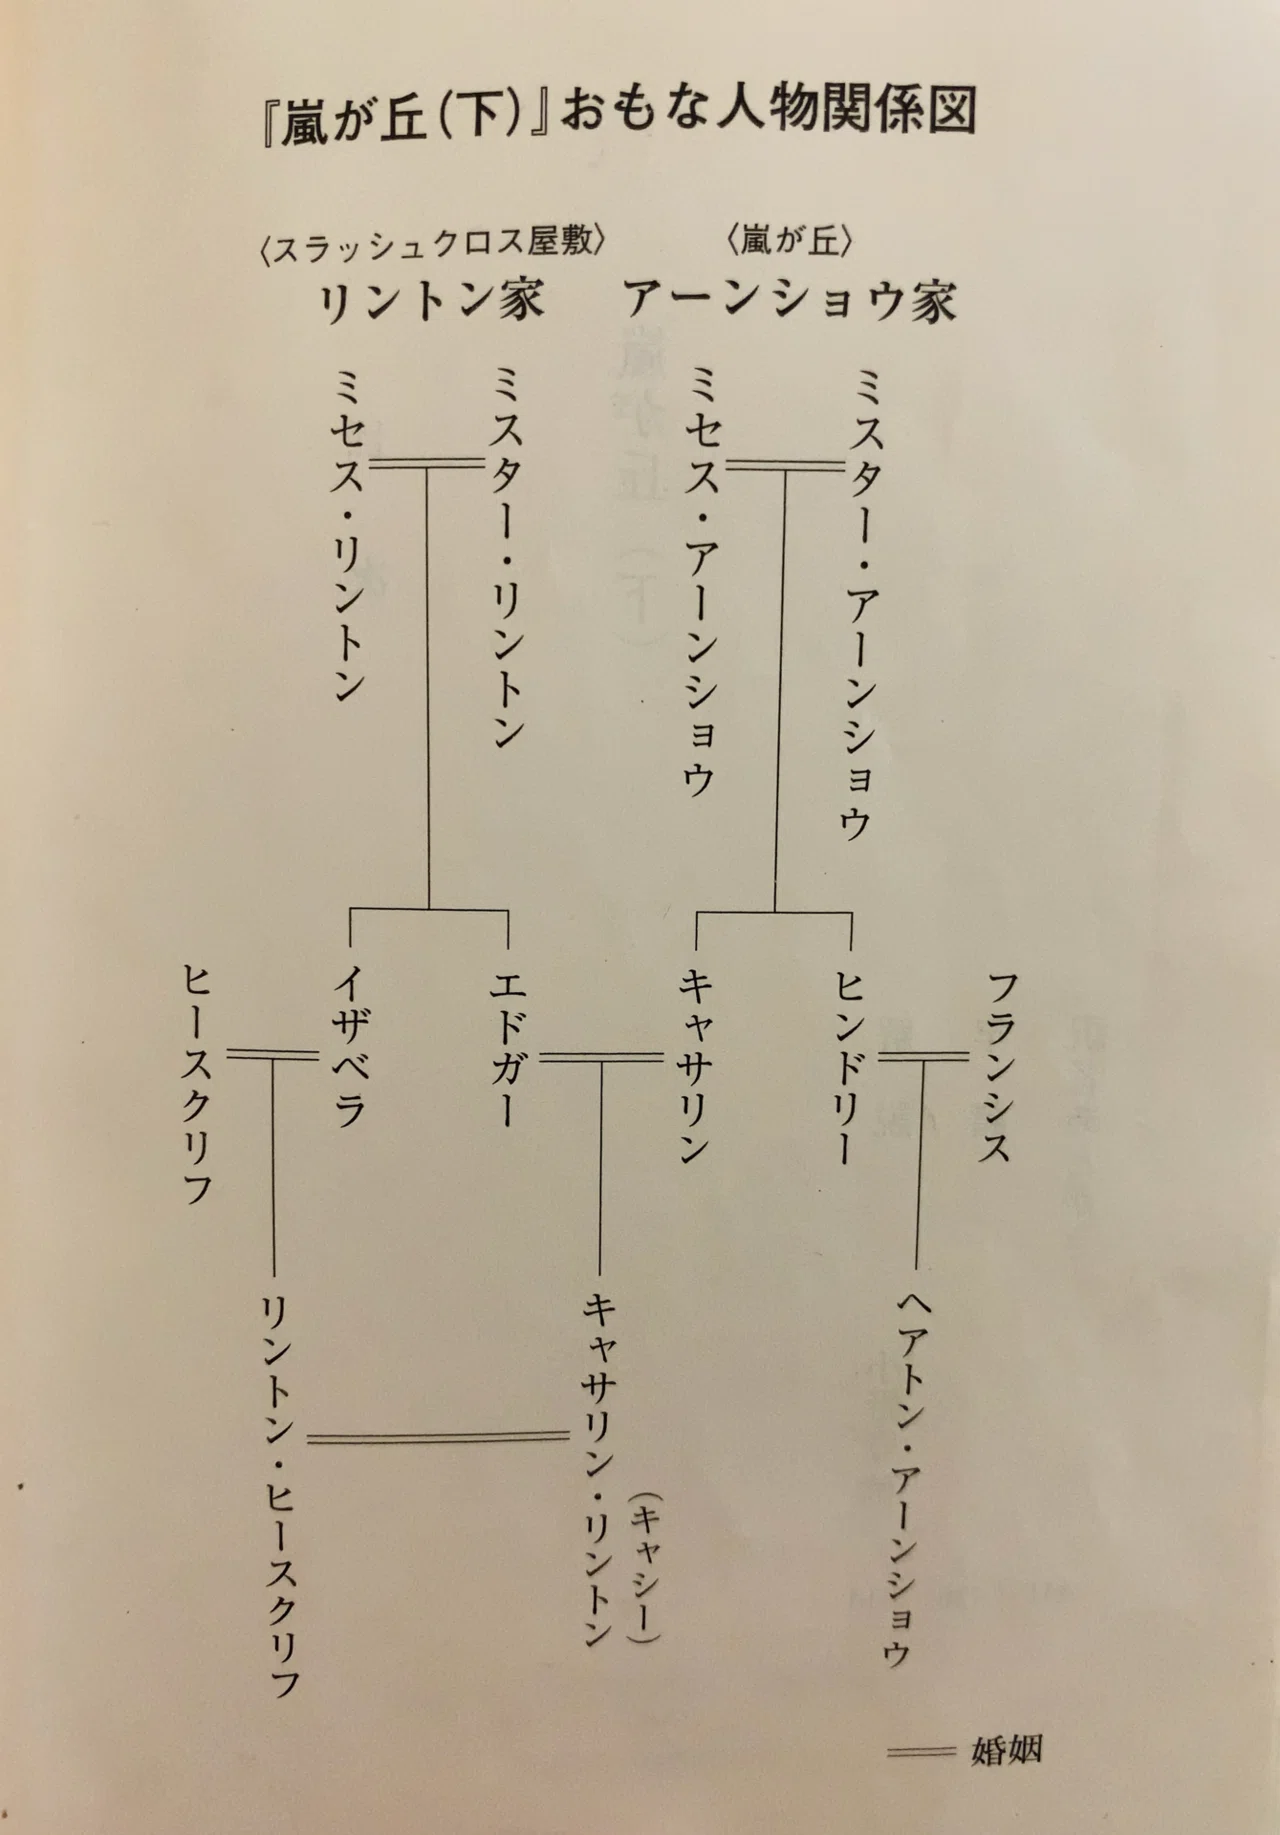 『嵐が丘(下)』おもな人物関係図
〈嵐が丘〉
アーンショウ家
〈スラッシュクロス屋敷〉
リントン家
ミスター・アーンショウ
ミセス・アーンショウ
ミスター・リントン
ミセス・リントン
フランシス
ヒンドリー
キャサリン
エドガー
イザベラ
ヒースクリフ
ヘアトン・アーンショウ
(キャシー)
キャサリン・リントン
リントン・ヒースクリフ
婚姻